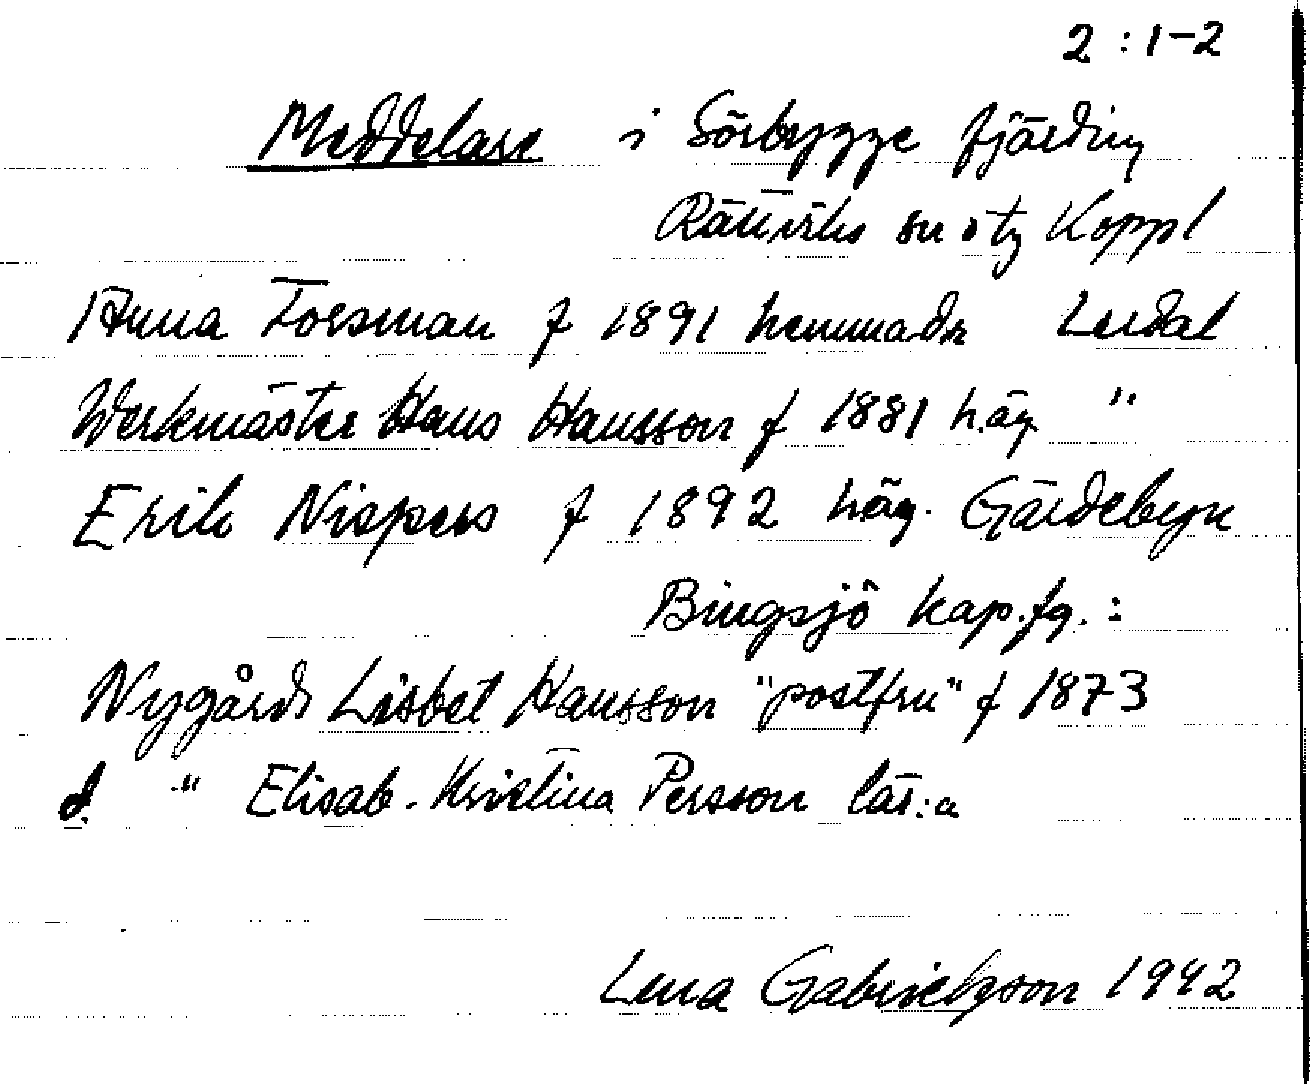 2 : 1-2
Meddelare i Sörbygge fjärding
Rättviks sn o tg Koppl
Anna Forsman f 1891 hemmadr Lerdal
Werkmäster Hans Hansson f 1881 h.äg. "
Erik Nispers f 1892 häg. Gärdebyn
Bingsjö kap.fg. :
Nygårds Lisbet Hansson "postfru" f 1873
d. " Elisab. Kristina Persson
Lena Gabrielsson 1942